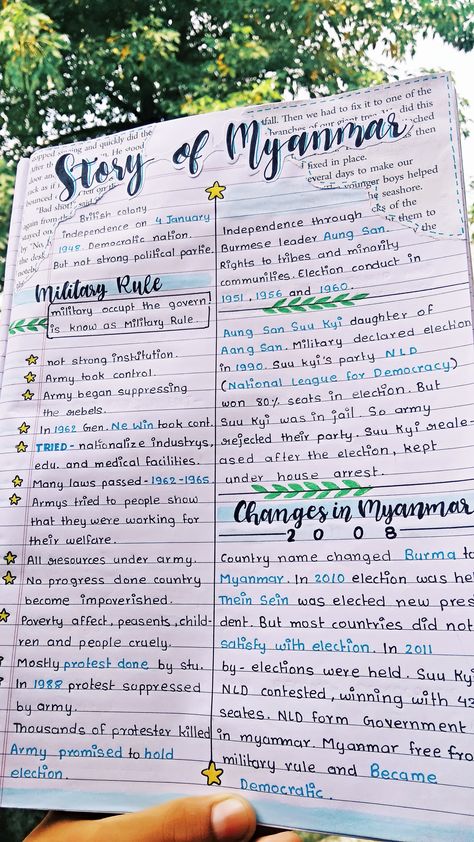 Story of Myanmar
British colony
independence on 4 January
1948. Democratic nation.
But not strong political partie.
Military Rule
military occupt the govern
is know as Military Rule.
not strong institution.
Army took control.
Army began suppressing
the rebels.
In 1962 Gen. Ne Win took cont.
TRIED - nationalize industrys,
edu. and medical facilities.
Many laws passed - 1962-1965
Armys tried to people show
that they were working for
their welfare.
All resources under army.
No progress done country
become impoverished.
Poverty affect, peasents, child-
ren and people cruely.
Mostly protest done by stu.
In 1988 protest suppressed
by army.
Thousands of protester killed
Army promised to hold
election.
Independence through
Burmese leader Aung San.
Rights to tribes and minority
communities. Election conduct in
1951, 1956 and 1960.
Aung San Suu Kyi daughter of
Aang San. Military declared election
in 1990. Suu kyi's party NLD
(National League for Democracy)
won 80% seats in election. But
Suu Kyi was in jail. So army
rejected their party. Suu Kyi reale-
ased after the election, kept
under house arrest.
Changes in Myanmar
2008
Country name changed Burma to
Myanmar. In 2010 election was he
Thein Sein was elected new pres
dent. But most countries did not
satisfy with election. In 2011
by- elections were held. Suu Ky
NLD contested, winning with 43
seates. NLD form Government
in myanmar. Myanmar free fro
military rule and Became
Democratic.
fall. Then we had to fix it to one of the
did this
then
fixed in place.
several days to make our
younger boys helped
the seashore.
of the
them to
the
and quickly did the
He stood